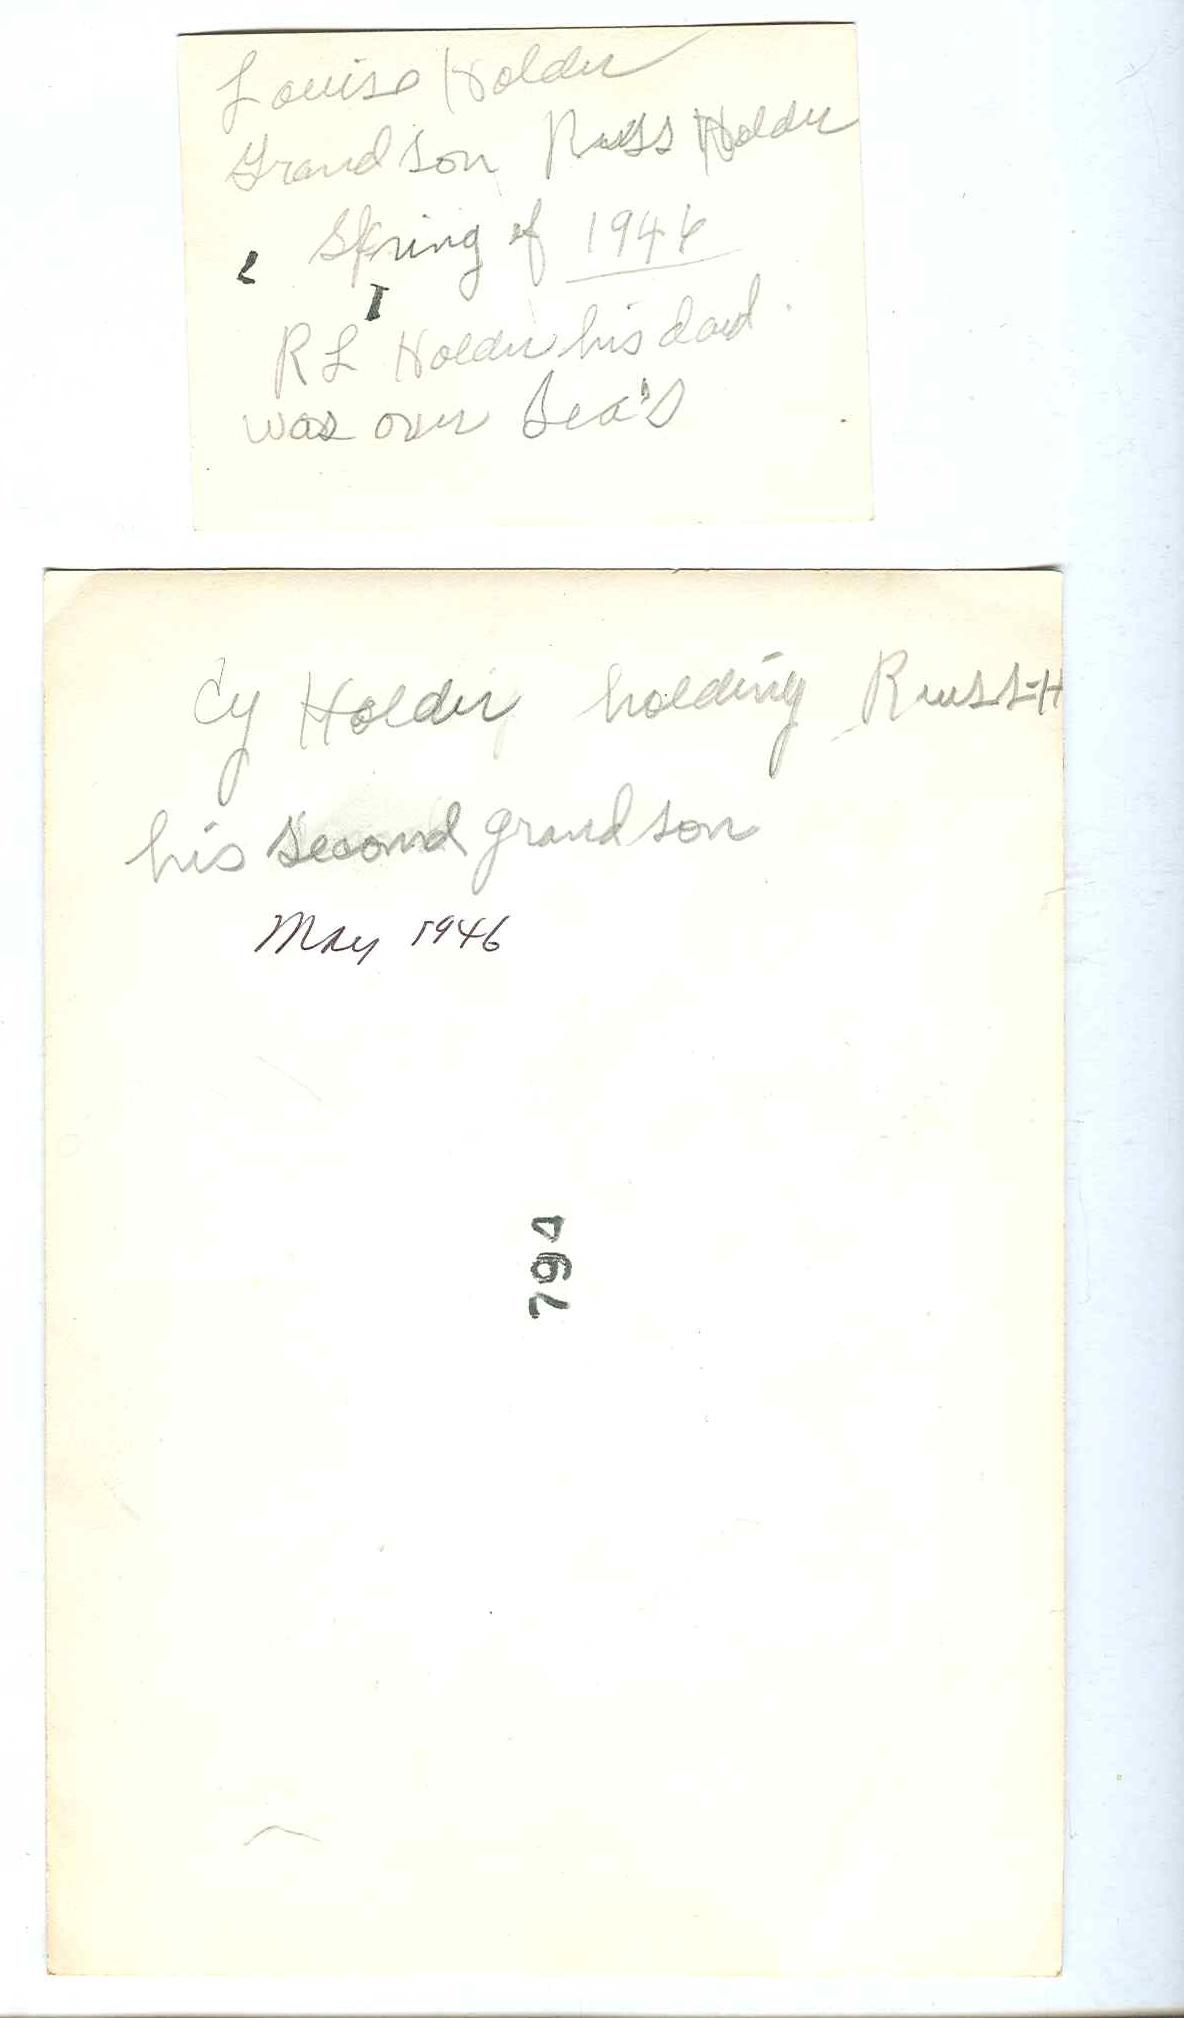 Louise Holder
Grandson Russ Holder
Spring of 1946
R L Holder his dad.
was over Sea's
Cy Holder holding Russ-H
his second grandson
May 1946
794